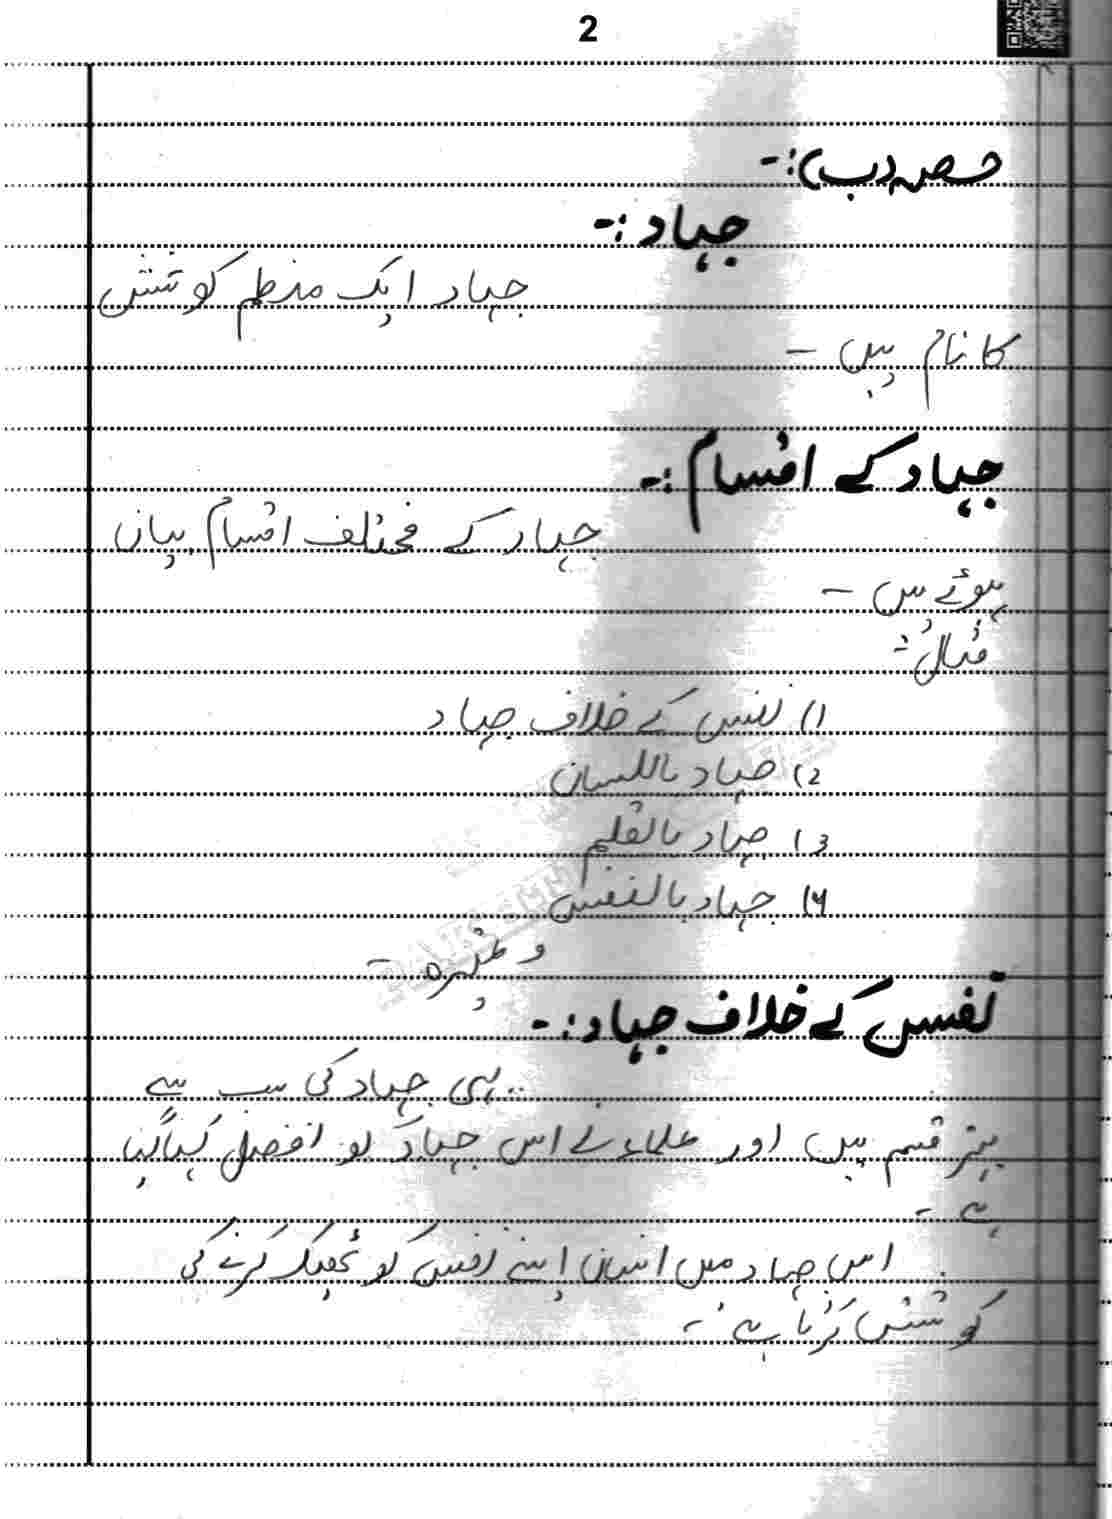 2
حصہ (ب):-
جہاد:-
جہاد ایک منظم کوشش
کا نام ہیں -
جہاد کے اقسام:-
جہاد کے مختلف اقسام بیان
ہوئے ہیں -
مثال:
1) نفس کے خلاف جہاد
2) جہاد باللسان
3) جہاد بالقلم
4) جہاد بالنفس
وغیرہ -
نفس کے خلاف جہاد:-
یہی جہاد کی سب سے
بہتر قسم ہیں اور علماء نے اس جہاد کو افضل کہا گیا
ہے -
اس جہاد میں انسان اپنے نفس کو ٹھیک کرنے کی
کوشش کرتا ہے -